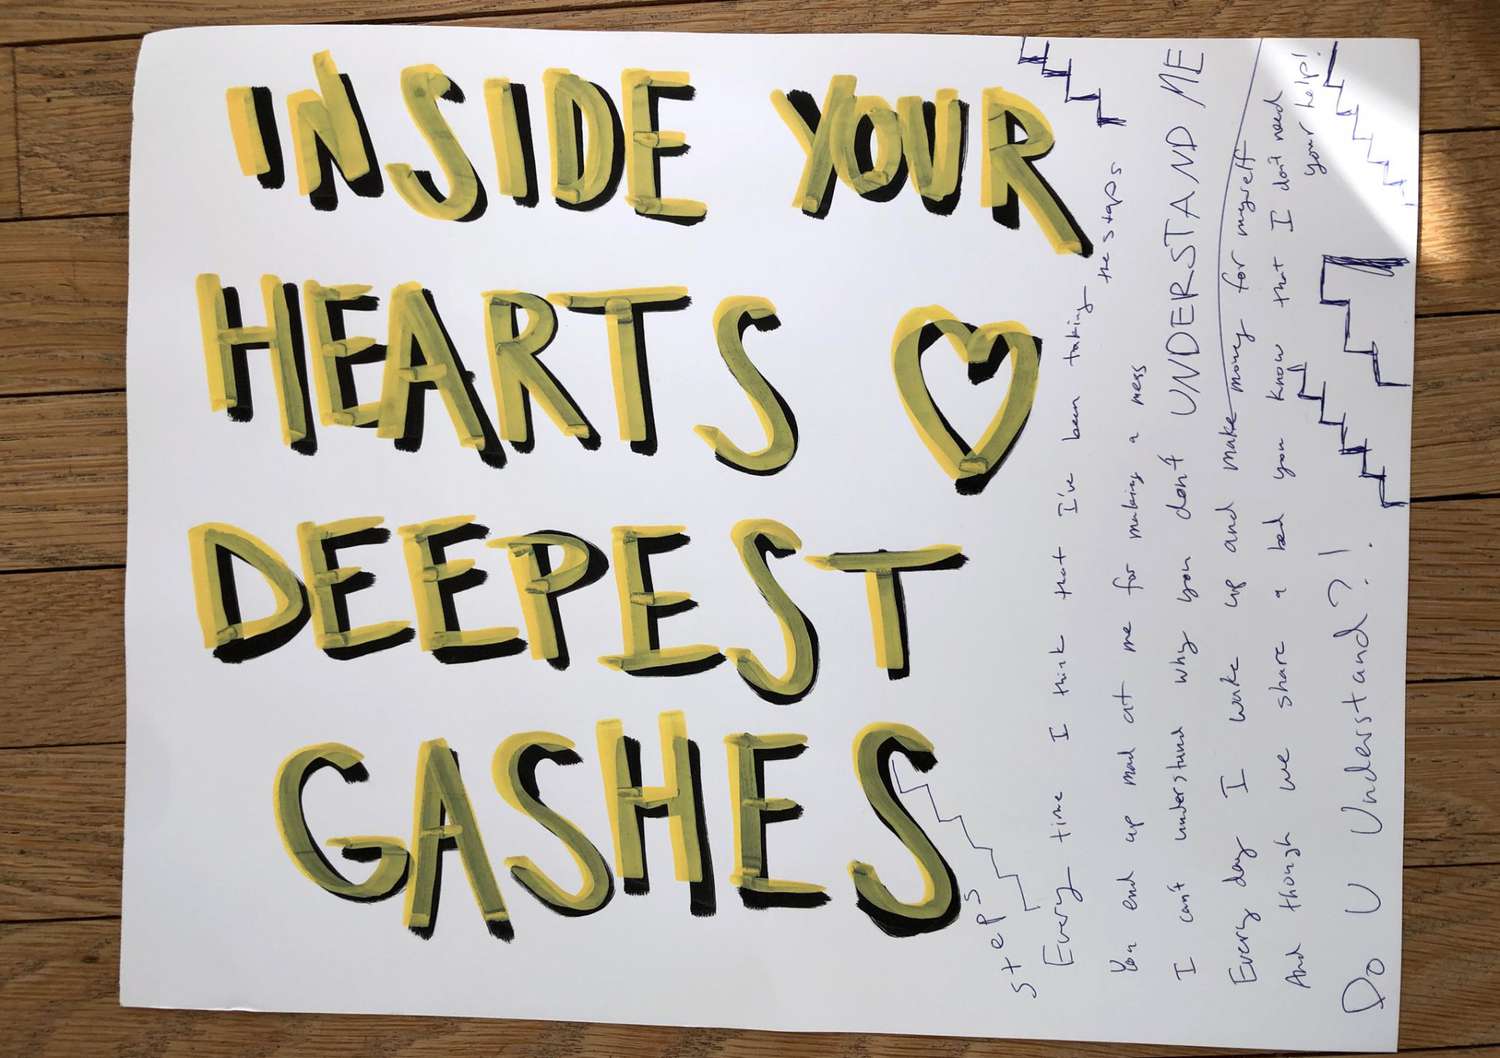 INSIDE YOUR
HEARTS
DEEPEST
GASHES
steps
Every time I think that I've been taking the steps
You end up mad at me for making a mess
I can't understand why you don't UNDERSTAND ME
Every day I wake up and make money for myself
And though we share a bed you know that I don't need
your help!
Do U Understand?!